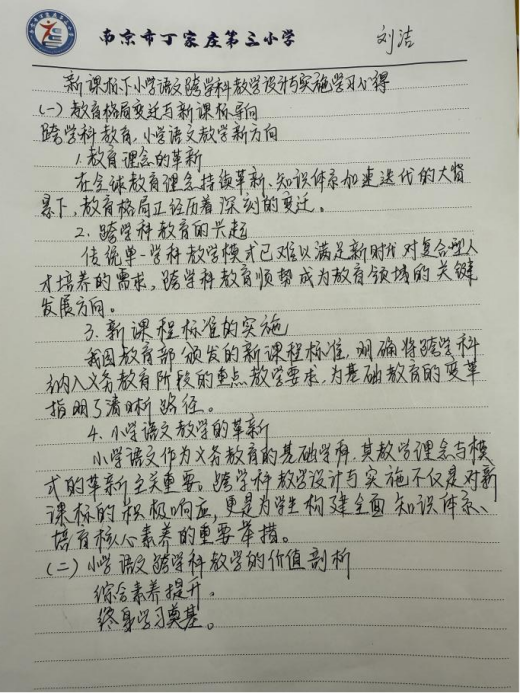 南京市丁家庄第三小学
刘洁
新课标下小学语文跨学科教学设计与实施学习心得
(一) 教育格局变迁与新课标导向
跨学科教育,小学语文教学新方向
1. 教育理念的革新
在全球教育理念持续革新、知识体系加速迭代的大背
景下,教育格局正经历着深刻的变迁。
2. 跨学科教育的兴起
传统单一学科教学模式已难以满足新时代对复合型人
才培养的需求,跨学科教育顺势成为教育领域的关键
发展方向。
3. 新课程标准的实施
我国教育部颁发的新课程标准,明确将跨学科
纳入义务教育阶段的重点教学要求,为基础教育的变革
指明了清晰路径。
4. 小学语文教学的革新
小学语文作为义务教育的基础学科,其教学理念与模
式的革新至关重要。跨学科教学设计与实施不仅是对新
课标的积极响应,更是为学生构建全面知识体系、
培育核心素养的重要举措。
(二) 小学语文跨学科教学的价值剖析
综合素养提升。
终身学习奠基。